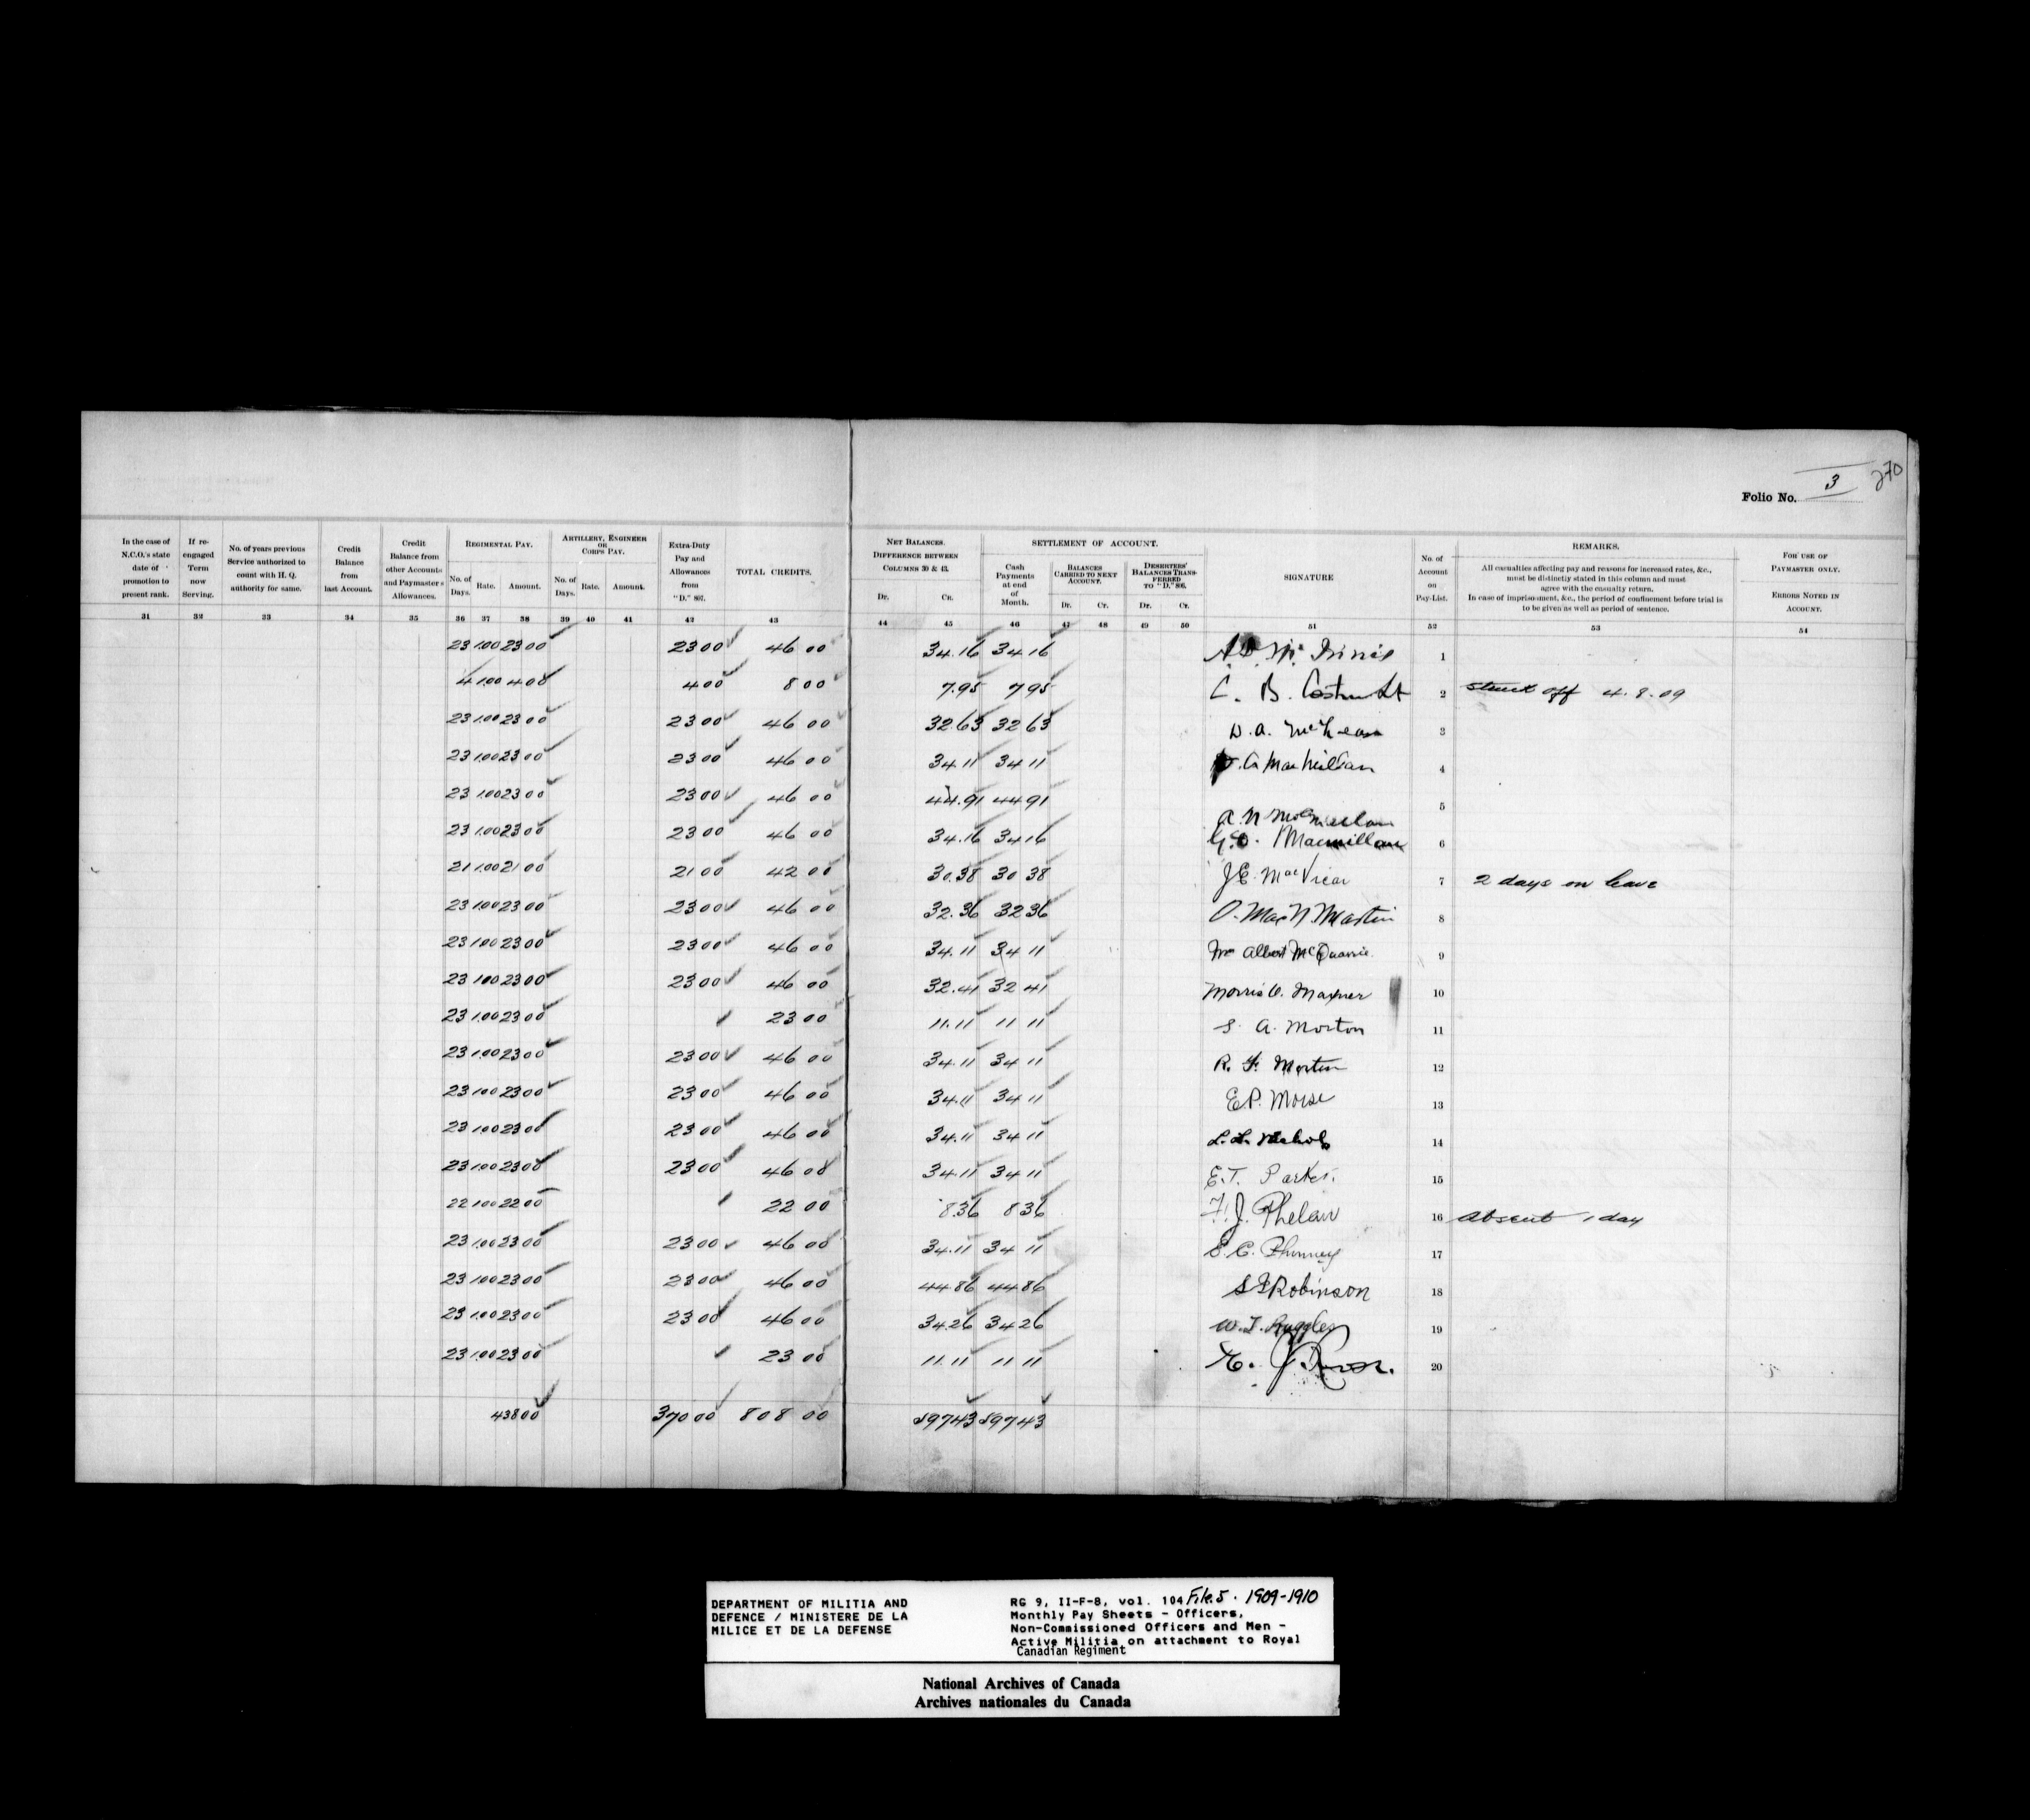 270
Folio No. 3
In the case of N.C.O.'s state date of promotion to present rank.
If re-engaged Term now Serving.
No. of years previous Service authorized to count with H. Q. authority for same.
Credit Balance from last Account.
Credit Balance from other Accounts and Paymaster's Allowances.
REGIMENTAL PAY.
No. of Days. Rate. Amount.
ARTILLERY, ENGINEER OR CORPS PAY.
No. of Days. Rate. Amount.
Extra-Duty Pay and Allowances from "D." 807.
TOTAL CREDITS.
NET BALANCES. DIFFERENCE BETWEEN COLUMNS 30 & 43.
Dr. Cr.
SETTLEMENT OF ACCOUNT.
Cash Payments at end of Month.
BALANCES CARRIED TO NEXT ACCOUNT.
Dr. Cr.
DESERTERS' BALANCES TRANSFERRED TO "D." 806.
Dr. Cr.
SIGNATURE
No. of Account on Pay-List.
REMARKS.
All casualties affecting pay and reasons for increased rates, &c., must be distinctly stated in this column and must agree with the casualty return.
In case of imprisonment, &c., the period of confinement before trial is to be given as well as period of sentence.
FOR USE OF PAYMASTER ONLY.
ERRORS NOTED IN ACCOUNT.
31 32 33 34 35 36 37 38 39 40 41 42 43 44 45 46 47 48 49 50 51 52 53 54
23 1.00 23 00 23 00 46 00 34.16 34 16 1
4 1.00 4 00 4 00 8 00 7.95 7 95 C. B. 2 struck off 4.8.09
23 1.00 23 00 23 00 46 00 32.63 32 63 D. A. 3
23 1.00 23 00 23 00 46 00 34.11 34 11 4
23 1.00 23 00 23 00 46 00 44.91 44 91 A. N. 5
23 1.00 23 00 23 00 46 00 34.16 34 16 G. O. Macmillan 6
21 1.00 21 00 21 00 42 00 30.38 30 38 J E. MacVicar 7 2 days on leave
23 1.00 23 00 23 00 46 00 32.36 32 36 O. MacN. Martin 8
23 1.00 23 00 23 00 46 00 34.11 34 11 Wm Albert McQuarrie 9
23 1.00 23 00 23 00 46 00 32.41 32 41 Morris O. Maxner 10
23 1.00 23 00 23 00 11.11 11 11 S. A. Morton 11
23 1.00 23 00 23 00 46 00 34.11 34 11 R. F. Morton 12
23 1.00 23 00 23 00 46 00 34.11 34 11 E P. Morse 13
23 1.00 23 00 23 00 46 00 34.11 34 11 L. L. Nichols 14
23 1.00 23 00 23 00 46 00 34.11 34 11 E. T. Parker. 15
22 1.00 22 00 22 00 8.36 8 36 F. J. Phelan 16 Absent 1 day
23 1.00 23 00 23 00 46 00 34.11 34 11 S. C. Phinney 17
23 1.00 23 00 23 00 46 00 44.86 44 86 S F Robinson 18
23 1.00 23 00 23 00 46 00 34.26 34 26 W. T. Ruggles 19
23 1.00 23 00 23 00 11.11 11 11 20
438 00 370 00 808 00 597 43 597 43
DEPARTMENT OF MILITIA AND
DEFENCE / MINISTERE DE LA
MILICE ET DE LA DEFENSE
RG 9, II-F-8, vol. 104 File 5. 1909-1910
Monthly Pay Sheets - Officers,
Non-Commissioned Officers and Men -
Active Militia on attachment to Royal
Canadian Regiment
National Archives of Canada
Archives nationales du Canada